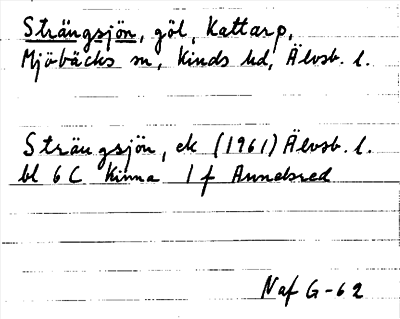 Strängsjön, göl, Kattarp,
Mjöbäcks sn, Kinds hd, Älvsb. l.
Strängsjön, ek (1961) Älvsb. l.
bl 6 C Kinna 1 f Annedsred
Naf G-62